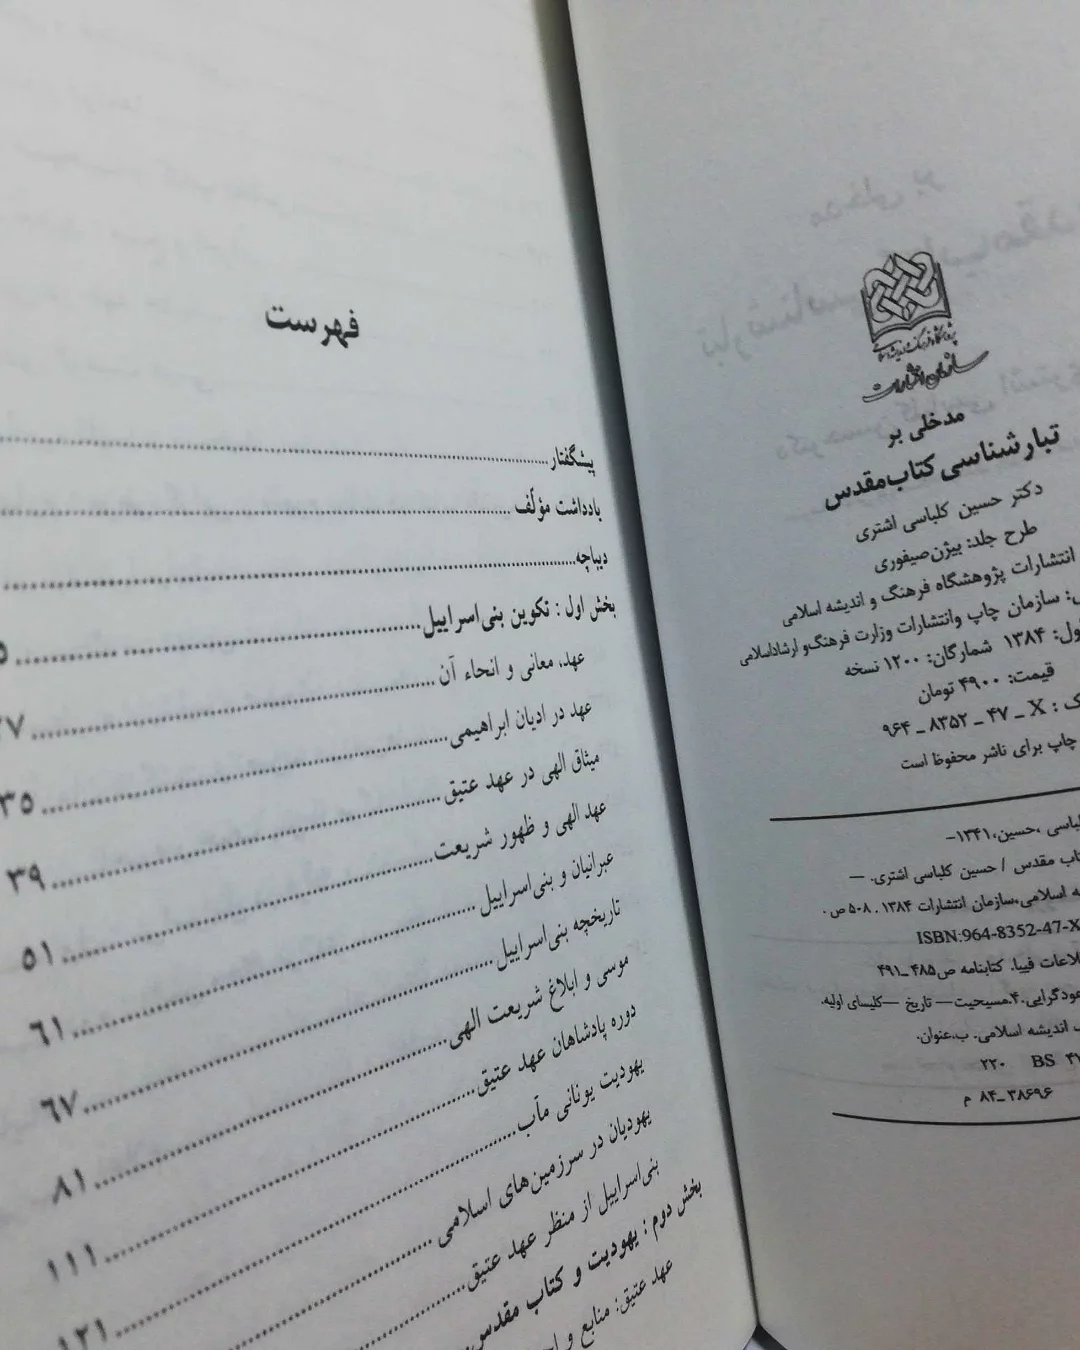 پژوهشگاه فرهنگ و اندیشه اسلامی
سازمان انتشارات
مدخلی بر
تبارشناسی کتاب‌مقدس
دکتر حسین کلباسی اشتری
طرح جلد: بیژن‌صیفوری
انتشارات پژوهشگاه فرهنگ و اندیشه اسلامی
سازمان چاپ وانتشارات وزارت فرهنگ‌و ارشاداسلامی
۱۳۸۴ شمارگان: ۱۲۰۰ نسخه
قیمت: ۴۹۰۰ تومان
۹۶۴ ـ ۸۳۵۲ ـ ۴۷ ـ X
چاپ برای ناشر محفوظ است
حسین،۱۳۴۱–
مقدس / حسین کلباسی اشتری. —
اسلامی،سازمان انتشارات ۱۳۸۴ . ۵۰۸ ص .
ISBN:964-8352-47-X
فیپا. کتابنامه ص۴۸۵ ــ۴۹۱
۴.مسیحیت— تاریخ —کلیسای اولیه.
اندیشه اسلامی. ب.عنوان.
۲۲۰ BS
۳۸۶۹۶ــ۸۴ م
فهرست
پیشگفتار
یادداشت مؤلّف
دیباچه
بخش اول : تکوین بنی‌اسراییل
عهد، معانی و انحاء آن
عهد در ادیان ابراهیمی ۳۵
میثاق الهی در عهد عتیق ۳۹
عهد الهی و ظهور شریعت ۵۱
عبرانیان و بنی‌اسراییل ۶۱
تاریخچه بنی‌اسراییل ۶۷
موسی و ابلاغ شریعت الهی ۸۱
دوره پادشاهان عهد عتیق ۱۱۱
یهودیت یونانی مآب ۱۲۱
یهودیان در سرزمین‌های اسلامی
بنی‌اسراییل از منظر عهد عتیق
بخش دوم : یهودیت و کتاب مقدس
عهد عتیق: منابع و